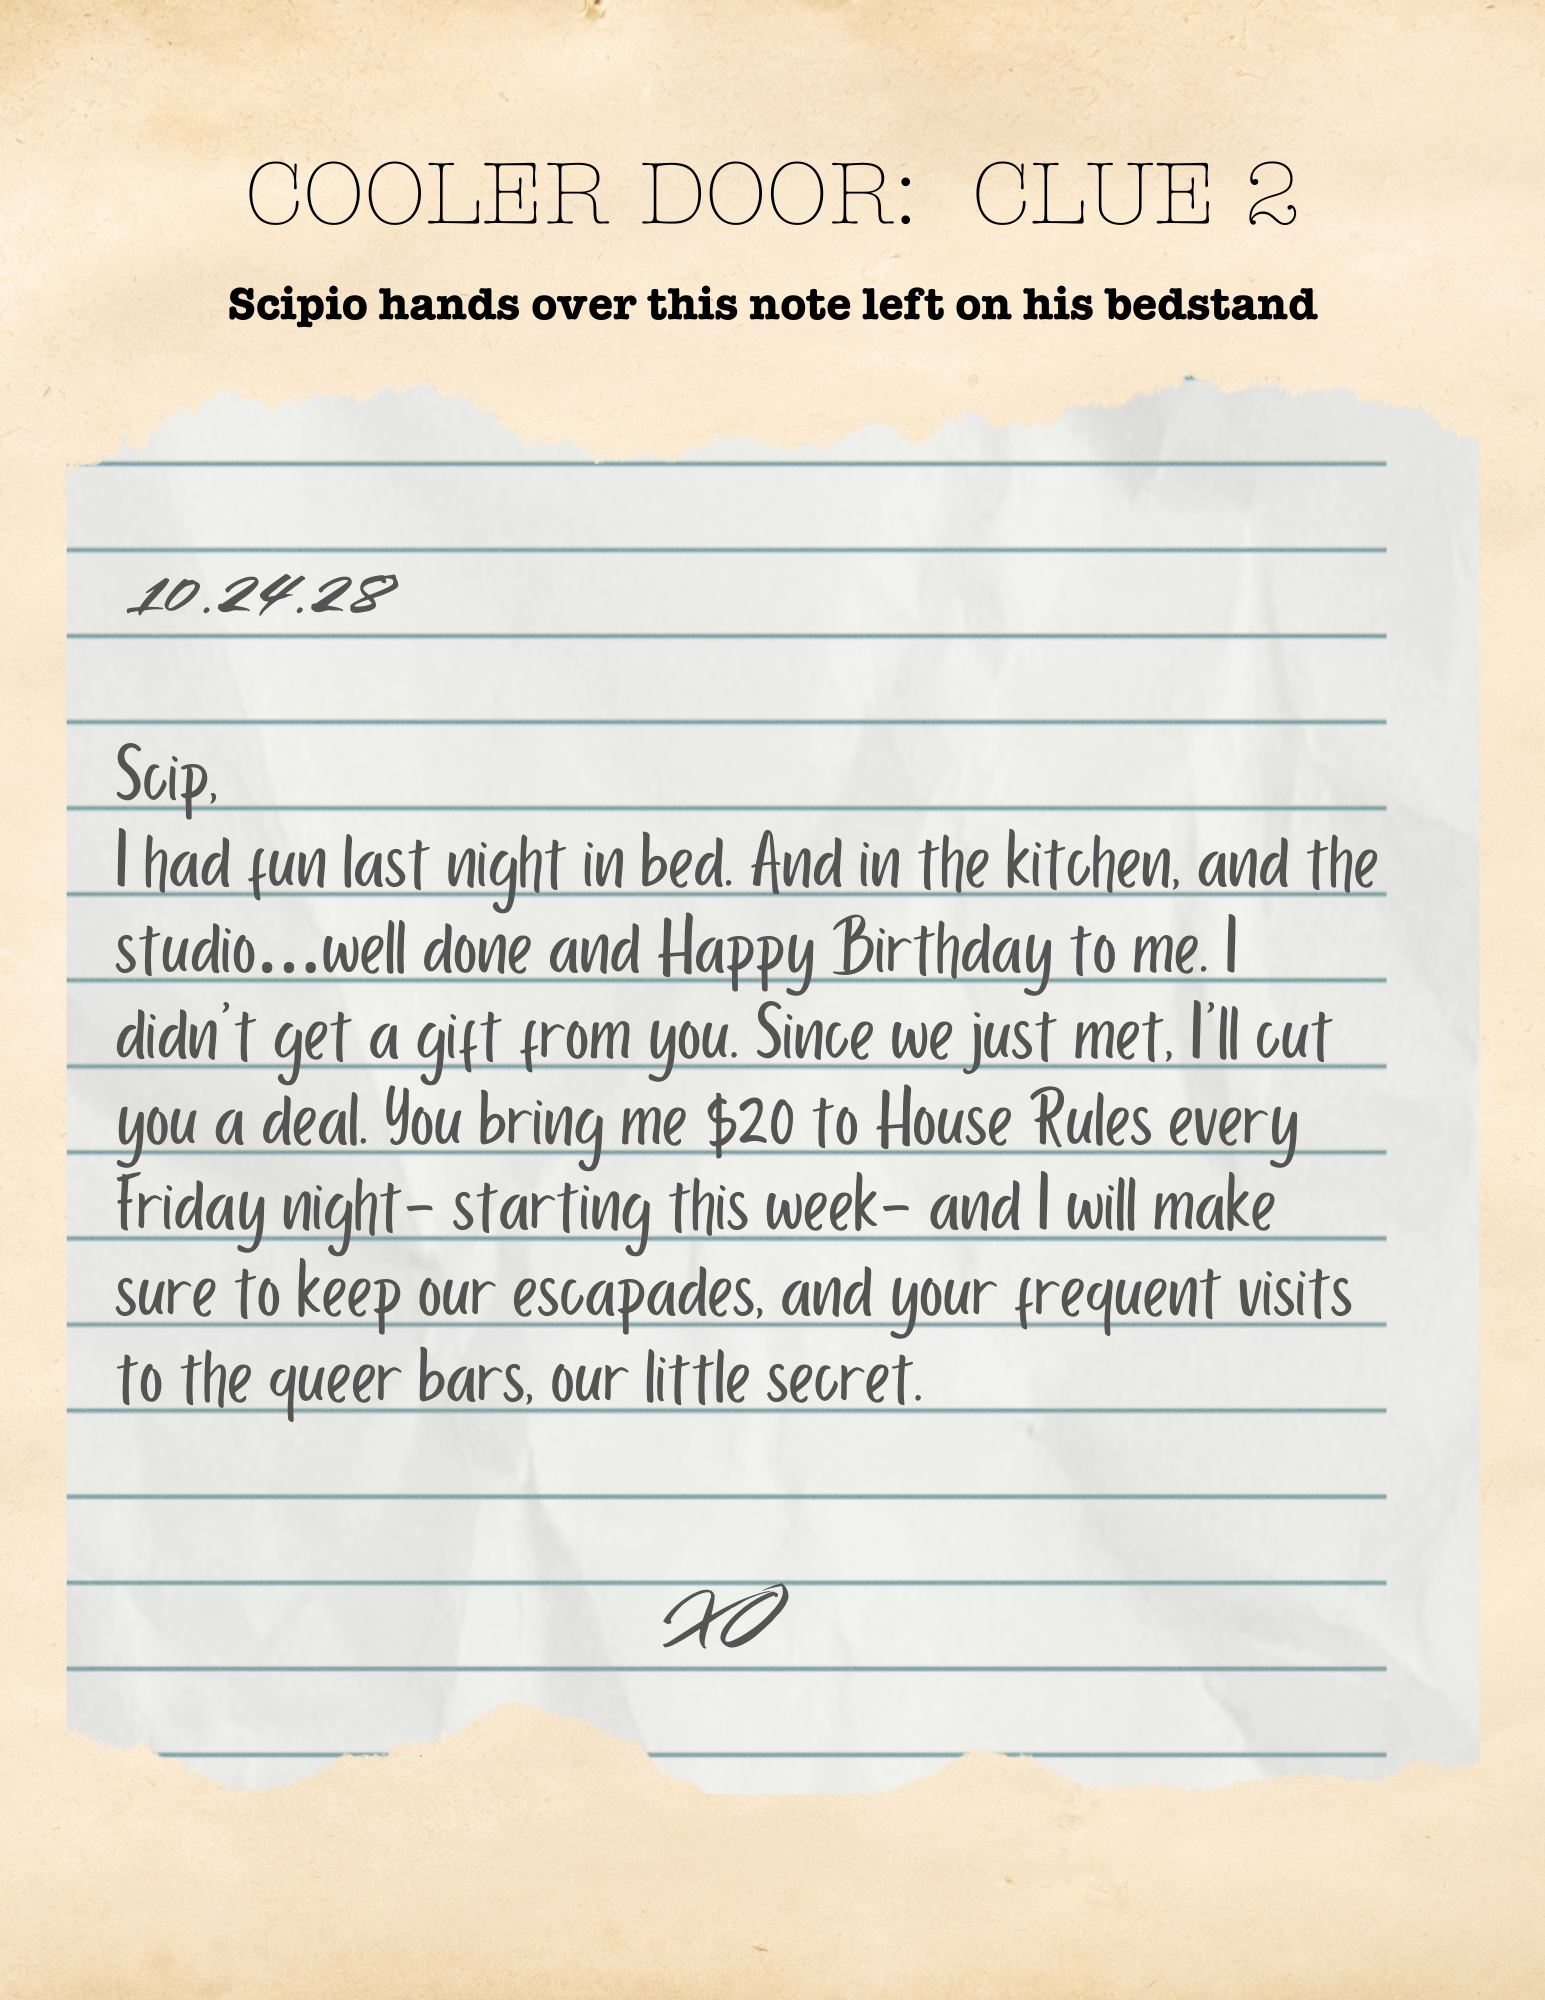 COOLER DOOR: CLUE 2
Scipio hands over this note left on his bedstand
10.24.28
Scip,
I had fun last night in bed. And in the kitchen, and the
studio...well done and Happy Birthday to me. I
didn't get a gift from you. Since we just met, I'll cut
you a deal. You bring me $20 to House Rules every
Friday night- starting this week- and I will make
sure to keep our escapades, and your frequent visits
to the queer bars, our little secret.
XO